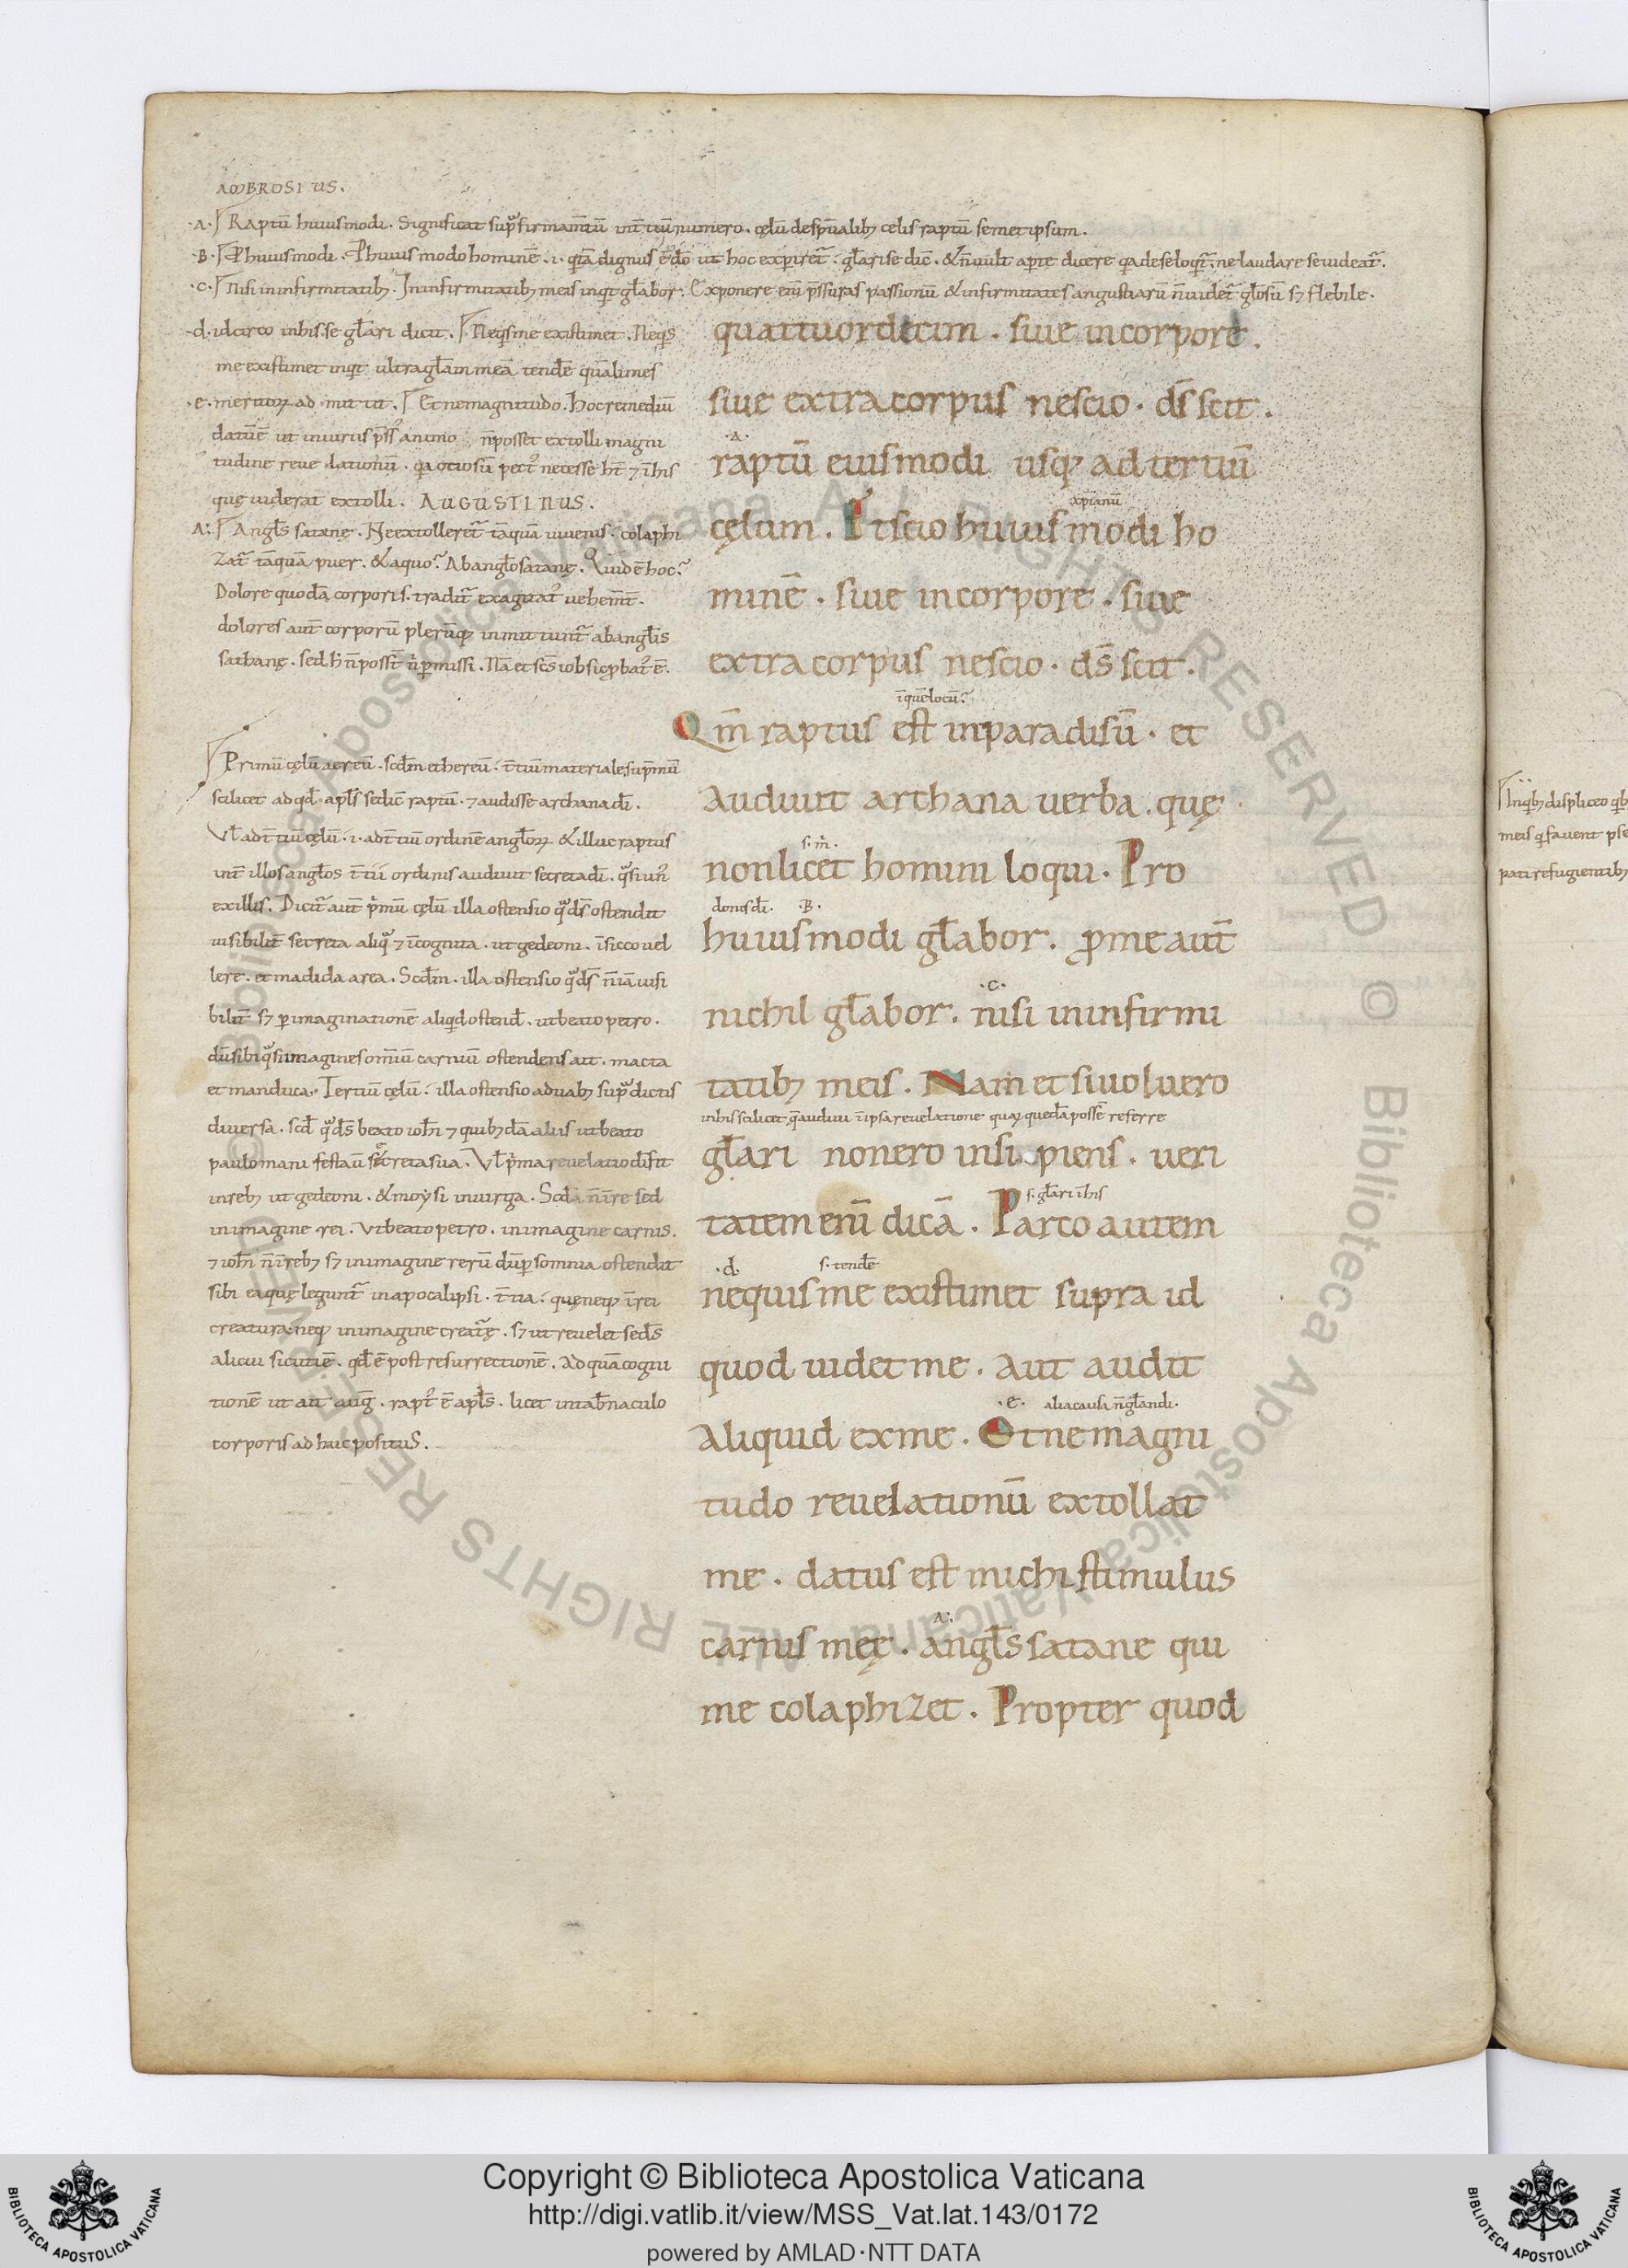 AMBROSIUS.
.A. Raptū huiusmodi. Significat sup̄ firmam̄tū int̄ t̄tiū numero. cęlū de sp̄ualib; celis raptū semet ipsum.
.B. P huiusmodi. P huius modo hominē. i. q̄a dignus ē dō ut hoc exp̄iret̄. gl̄ari se dic̄. & n̄ uult ap̄te dicere q̄a de se loqt̄. ne laudare se uideat̄.
.C. Nisi in infirmitatib;. In infirmitatib; meis inqt gl̄abor. Exponere eni p̄ssuras passionū & infirmitates angustiarū n̄ uidet̄ gl̄osū s; flebile.
.d. idcirco in his se gl̄ari dicit. Neqs me existimet. Neqs
me existimet inqt ultra gl̄am meā tend̄e quā limes
.e. meritoꝝ ad mittit. Et ne magnitudo. Hoc remediū
datū ē ut iniuriis p̄ss' animo n̄ posset extolli magni
tudine reue lationū. q̄a otiosū pect' necesse h̄t ⁊ ī his
quę uiderat extolli. AUGUSTINUS.
A: Angl̄s satanę. Ne extolleret̄ tāquā iuuenis. colaphi
zat̄ tāquā puer. & a quo? Ab angl̄o satanę. Quid ē hoc?
Dolore quodā corporis. tradit̄ exagitat' uehem̄t̄.
dolores aut̄ corporū plerūq; inmittunt̄ ab angl̄is
sathanę. sed h̄ n̄ possit̄ n̄ p̄missi. Nā et sc̄s iob sic p̄bat' ē.
Primū cęlū aereū. scd̄m ethereū. t̄tiū materiale sup̄mū
scilicet ad qd̄ apl̄s se dic̄ raptū. ⁊ audisse archana dī.
Vl̄ ad t̄tiū cęlū. i. ad t̄tiū ordinē angl̄oꝝ & illuc raptus
int̄ illos angl̄os t̄tii ordinis audiuit secreta dī. q̄si un'
ex illis. Dicit̄ aut̄ p̄mū cęlū illa ostensio q̄ ds̄ ostendit
uisibilit̄ secreta aliq̄ ⁊ īcognita. ut gedeoni. ī sicco uel
lere. et madida area. Scd̄m. illa ostensio q̄ ds̄ n̄ iā uisi
bilit̄ s; p imaginationē aliqd ostend̄. ut beato petro.
dū sibi q̄si imagines omniū carniū ostendens ait. macta
et manduca. Tertiū cęlū. illa ostensio a duab; sup̄ dictis
diuersa. scd̄ q̄ ds̄ beato ioh̄i ⁊ quib;dā aliis ut beato
paulo manifestauit secreta sua. Vl̄ p̄ma reuelatio dī fit
in reb; ut gedeoni. & moysi in uirga. Scd̄a n̄ ī re sed
in imagine rei. ut beato petro. in imagine carnis.
⁊ ioh̄i n̄ ī reb; s; in imagine rerū dū p somnia ostendit
sibi ea quę legunt̄ in apocalipsi. t̄tia. quę neq; ī rei
creatura: neq; in imagine creat̄ę. s; ut reuelet se ds̄
alicui sicuti ē. qd̄ ē post resurrectionē. ad quā cogni
tionē ut ait auḡ. rapt' ē apl̄s. licet in tab̄naculo
corporis ad huc positus.
quattuordecim. siue incorpore.
siue extra corpus nescio. ds̄ scit.
.A.
raptū eiusmodi usq; ad tertiū
xp̄ianū
cęlum. Et scio huiusmodi ho
minē. siue incorpore. siue
extra corpus nescio. ds̄ scit.
ī quē locū?
Qm̄ raptus est inparadisū. et
audiuit archana uerba. quę
s. m̄.
non licet homini loqui. Pro
donis dī. .B.
huiusmodi gl̄abor. p̄ me aut̄
.C.
nichil gl̄abor. nisi in infirmi
tatib; meis. Nam et si uoluero
in his scilicet q̄ audiui ī ipsa reuelatione quaꝝ quedā possē referre
gl̄ari non ero insipiens. ueri
s. gl̄ari ī his
tatem eni dicā. Parco autem
.d. s. tend̄e
nequis me existimet supra id
quod uidet me. Aut audit
.e. alia causa n̄ gl̄andi.
aliquid ex me. Et ne magni
tudo reuelationū extollat
me. datus est michi stimulus
A:
carnis meę. angl̄s satane qui
me colaphizet. Propter quod
In qb; displiceo qb
meis q fauent pse
pati refugientib;
Copyright © Biblioteca Apostolica Vaticana
http://digi.vatlib.it/view/MSS_Vat.lat.143/0172
powered by AMLAD·NTT DATA
BIBLIOTECA APOSTOLICA VATICANA
BIBLIOTECA APOSTOLICA VATICANA
© Biblioteca Apostolica Vaticana ALL RIGHTS RESERVED © Biblioteca Apostolica Vaticana ALL RIGHTS RESERVED